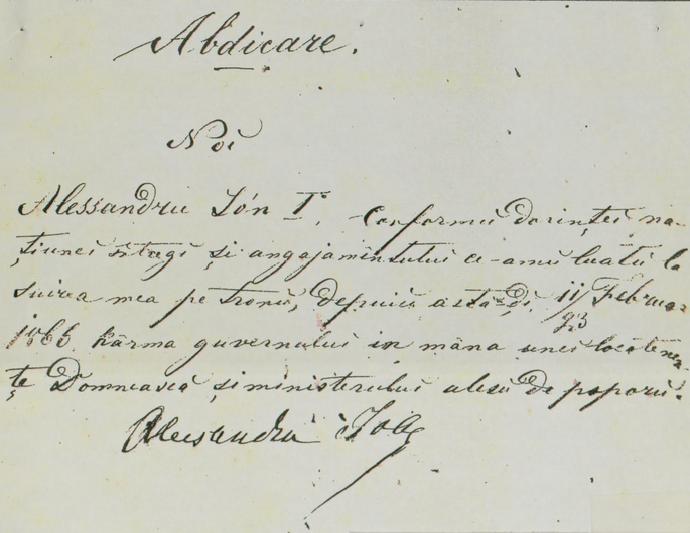 Abdicare.
Noi
Alessandru Ión I°, Conformŭ dorinței na-
țiunei întregi și angajamîntului ce-amŭ luatŭ la
suirea mea pe tronŭ, depuiŭ astă-ḑi 11/23 Februar
1866 kârma guvernuluĭ in mâna unei locoteneni-
țe Domneascâ și ministeruluĭ alesŭ de poporŭ.
Alessandru Ión